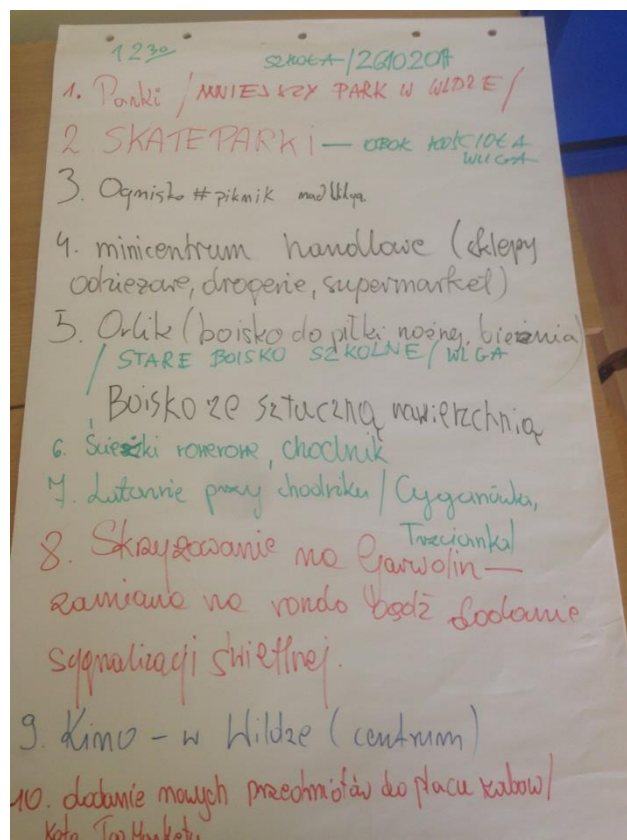 12³⁰ SZKOŁA/261020A
1. Parki / MNIEJSZY PARK W WILDZE/
2 SKATEPARKI — OBOK KOŚCIOŁA
WILGA
3. Ognisko # piknik nad Wilgą
4. minicentrum handlowe (sklepy
odzieżowe, drogerie, supermarket)
5. Orlik (boisko do piłki nożnej, bieżnia)
/ STARE BOISKO SZKOLNE / WLGA
Boisko ze sztuczną nawierzchnią
6. Ścieżki rowerowe, chodnik
7. Latarnie przy chodniku / Cyganówka,
Trzcianka/
8. Skrzyżowanie na Garwolin —
zamiana na rondo bądź dodanie
sygnalizacji świetlnej.
9. Kino - w Wildze (centrum)
10. dodanie nowych przedmiotów do placu zabaw/
Koło Top Marketu